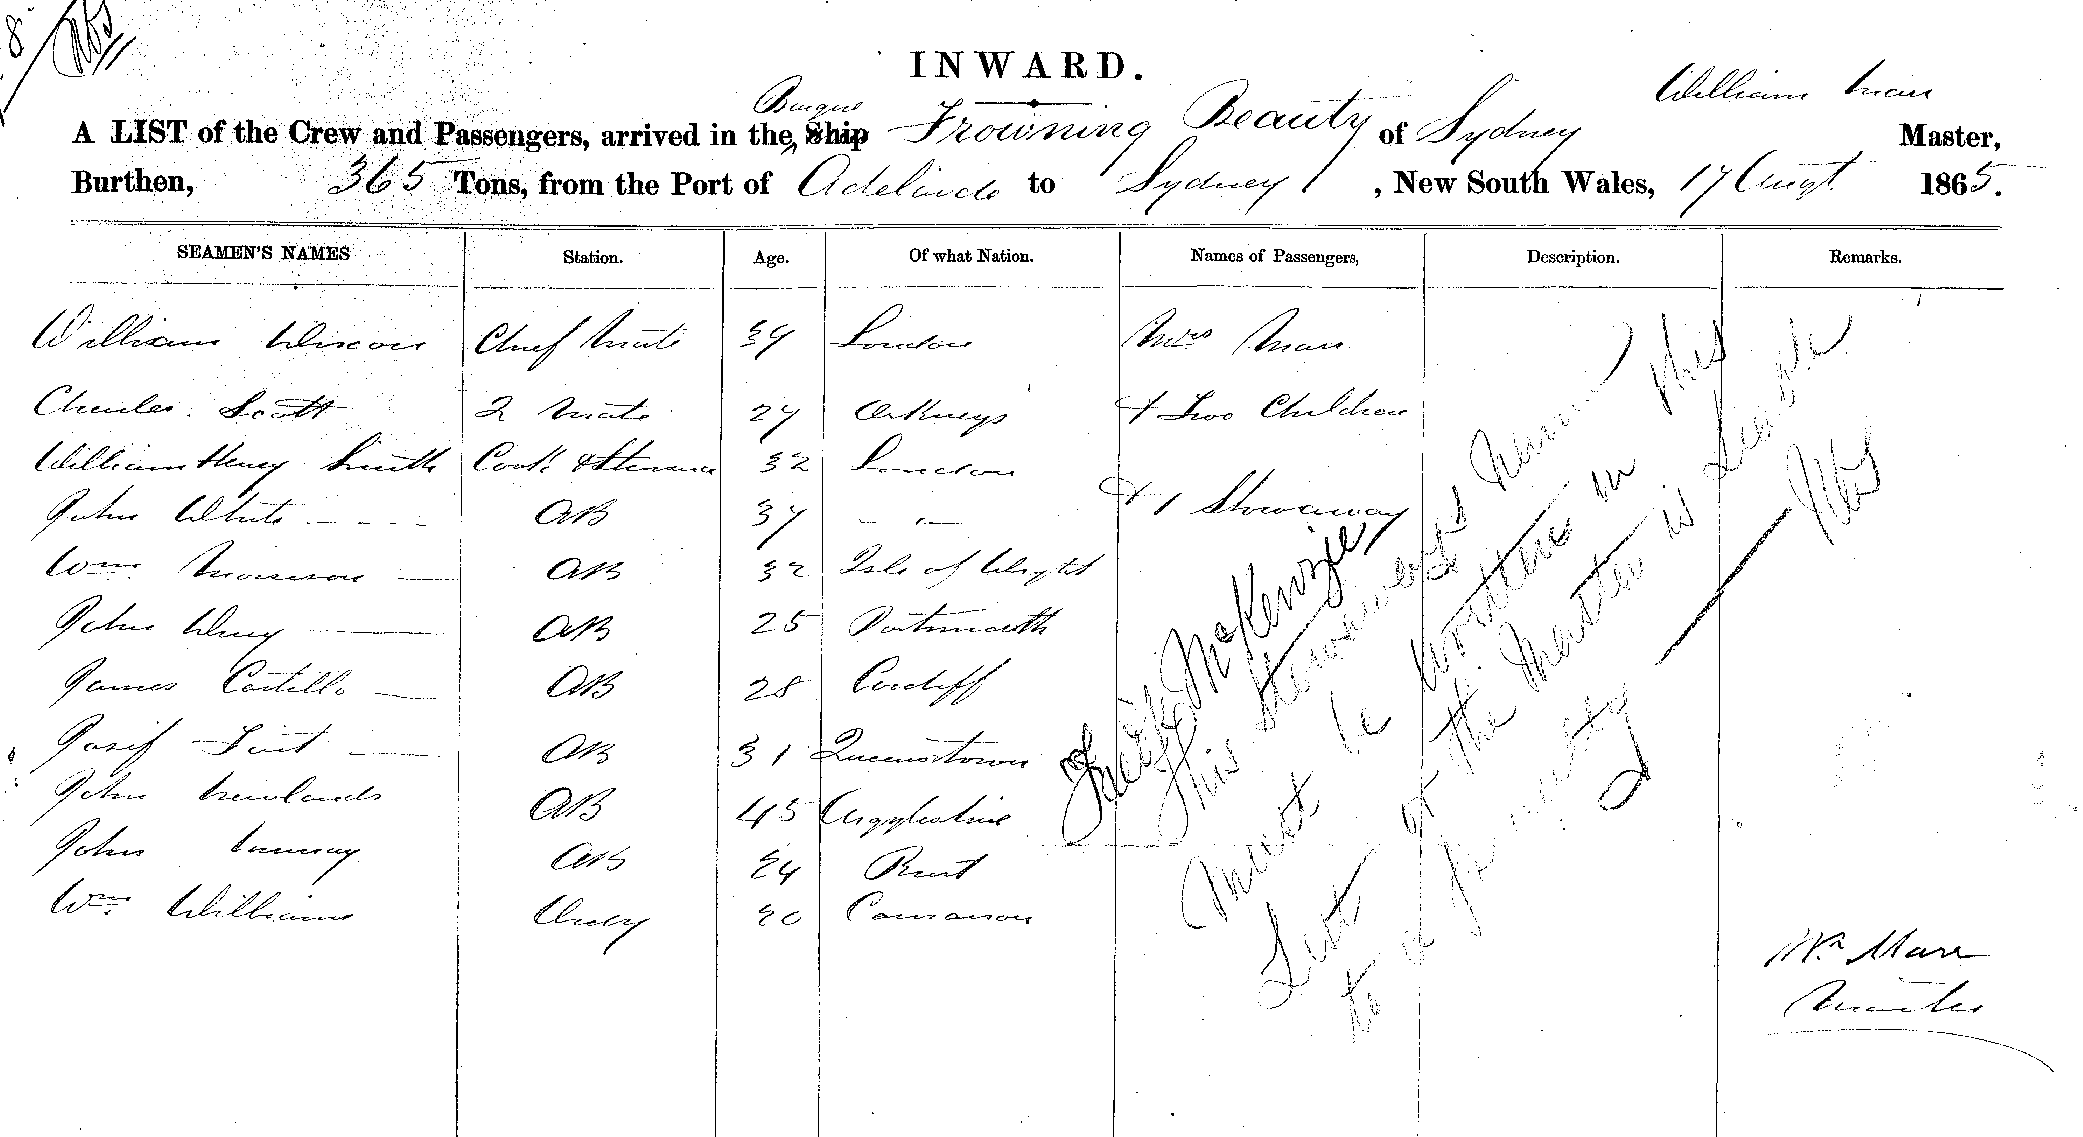 INWARD.
Barque William Marr
A LIST of the Crew and Passengers, arrived in the Ship Frowning Beauty of Sydney Master,
Burthen, 365 Tons, from the Port of Adelaide to Sydney, New South Wales, 17 Augt 1865.
SEAMEN'S NAMES Station. Age. Of what Nation. Names of Passengers, Description. Remarks.
William Chief Mate 39 London Mrs Marr
Charles Scott 2 Mate 27 Orkneys & Two Children
William Henry Smith Cook & Steward 32 London
John White AB 37 - " - & 1 Stowaway
Wm. Morrison AB 32 Isle of Wight
John AB 25 Portsmouth
James Costello AB 28 Cardiff
AB 31 Queenstown
John Newlands AB 45 Argyleshire
John AB 24 Kent
Wm. Williams 20
McKenzie
This Stowaway's Name
Must be written in this
List or the Master is liable
to a penalty
Wm Marr
Master